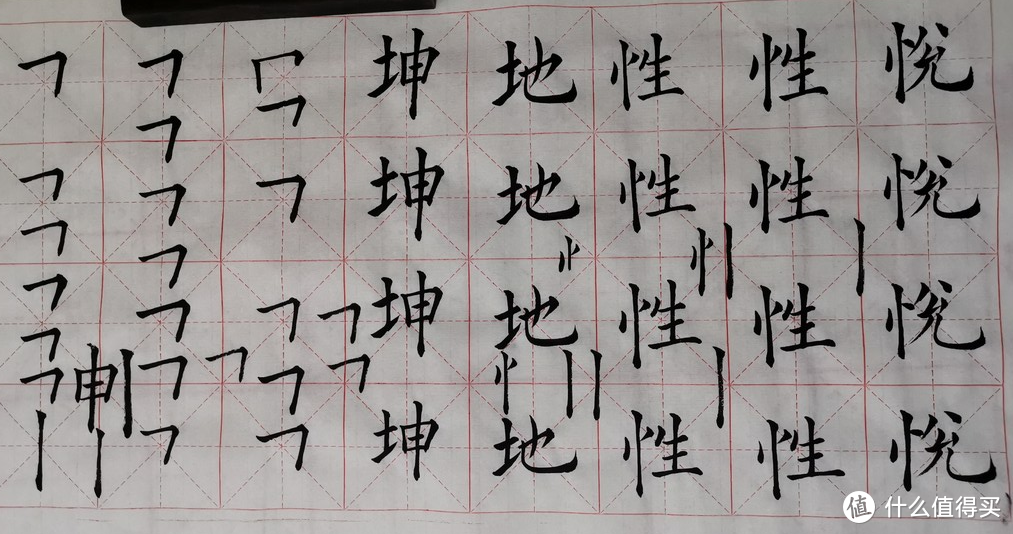 坤 地 性 性 悦
坤 地 性 性 悦
坤 地 性 性 悦
申
坤 地 性 性 悦
值 什么值得买